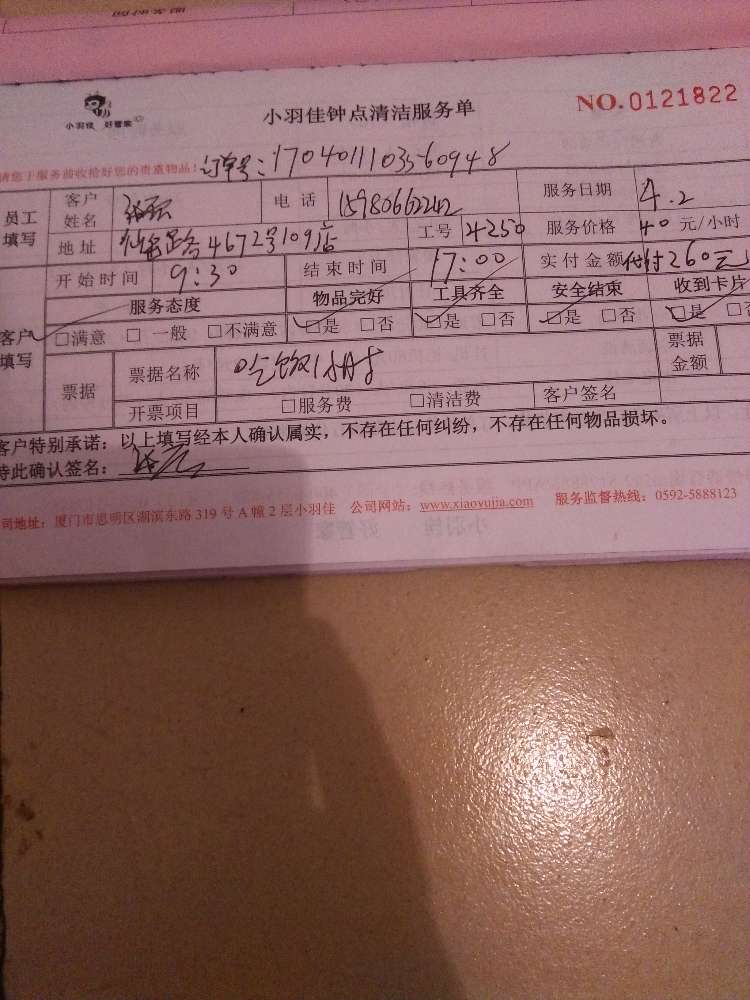 小羽佳 好管家
小羽佳钟点清洁服务单
NO.0121822
请您于服务前收拾好您的贵重物品!
订单号:17040111033560948
员工填写
客户姓名
电话
服务日期 4.2
地址 4672号109店
工号 4250
服务价格 40 元/小时
客户填写
开始时间 9:30
结束时间 17:00
实付金额 260元
服务态度 物品完好 工具齐全 安全结束 收到卡片
□满意 □一般 □不满意 □是 □否 □是 □否 □是 □否 □是
票据
票据名称 吃饭1小时
票据金额
开票项目 □服务费 □清洁费 客户签名
客户特别承诺:以上填写经本人确认属实,不存在任何纠纷,不存在任何物品损坏。
特此确认签名:
司地址:厦门市思明区湖滨东路 319 号 A 幢 2 层小羽佳 公司网站:www.xiaoyujia.com 服务监督热线:0592-5888123